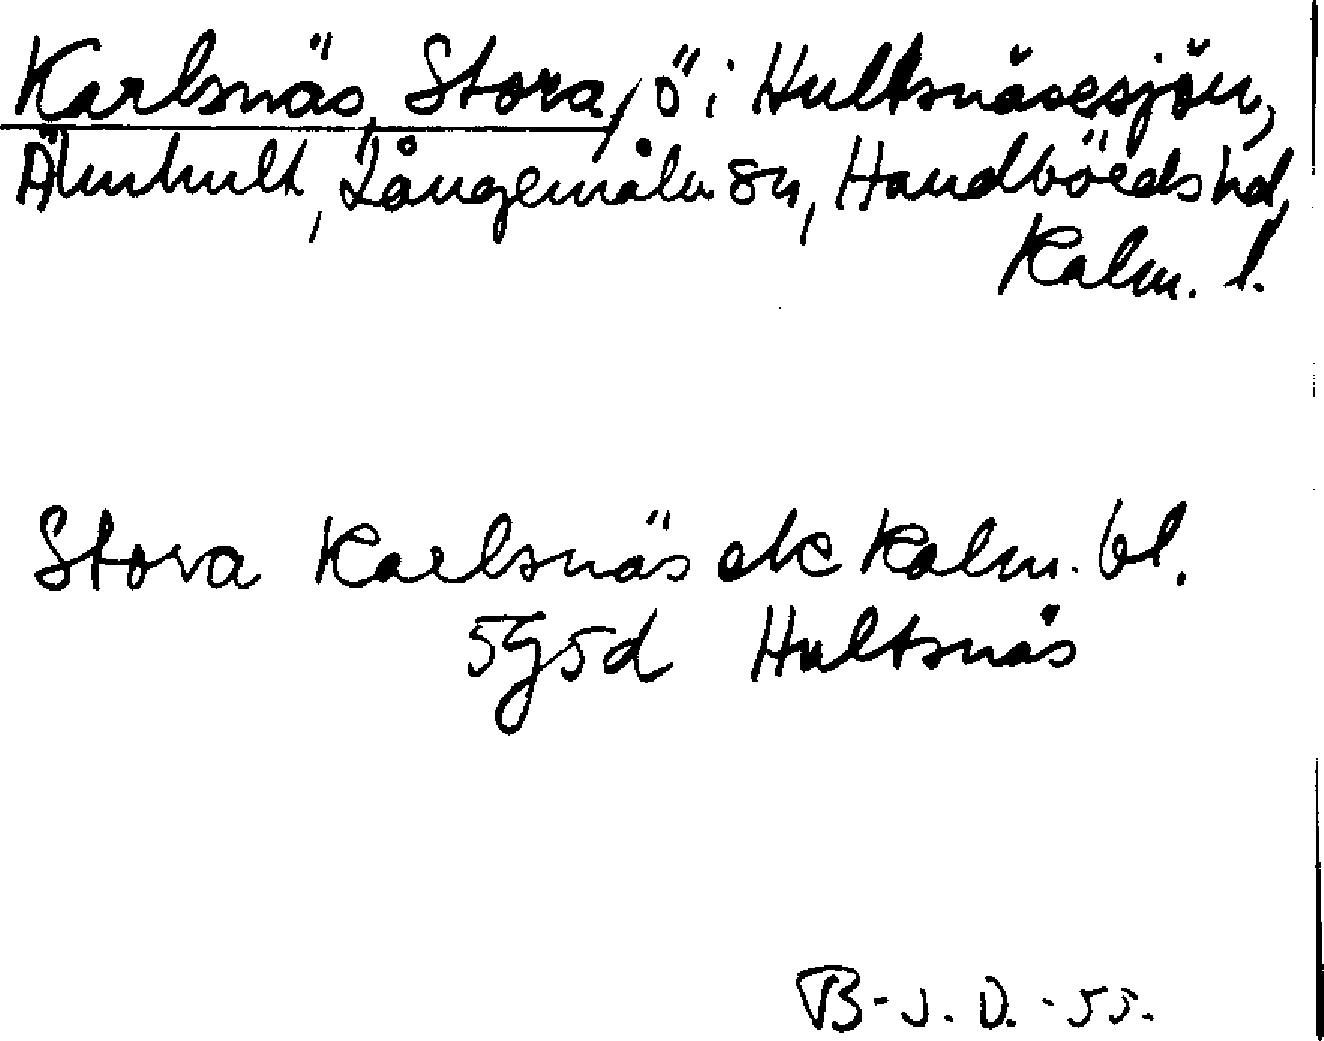 Karlsnäs, Stora, ö i Hultsnäsesjön,
Älmhult, Långemåla sn, Handbörds hd,
Kalm. l.
Stora Karlsnäs ek Kalm. bl.
5G5d Hultsnäs
B-J. D. -55.